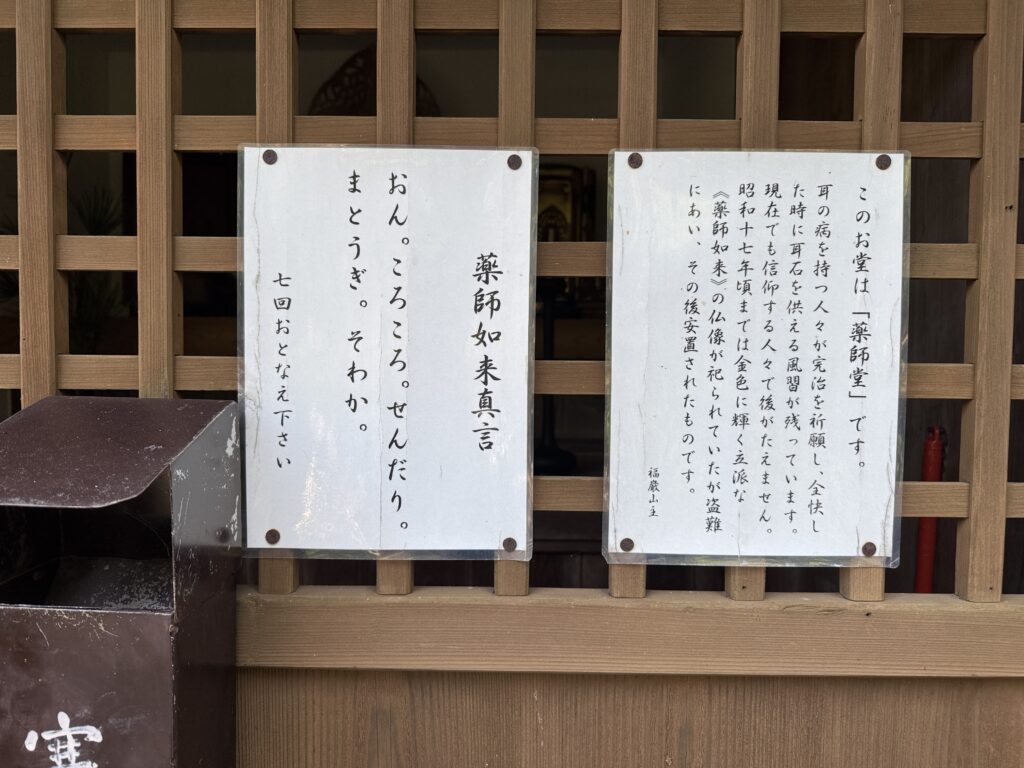 このお堂は「薬師堂」です。
耳の病を持つ人々が完治を祈願し、全快し
た時に耳石を供える風習が残っています。
現在でも信仰する人々で後がたえません。
昭和十七年頃までは金色に輝く立派な
《薬師如来》の仏像が祀られていたが盗難
にあい、その後安置されたものです。
福厳山主
薬師如来真言
おん。ころころ。せんだり。
まとうぎ。そわか。
七回おとなえ下さい